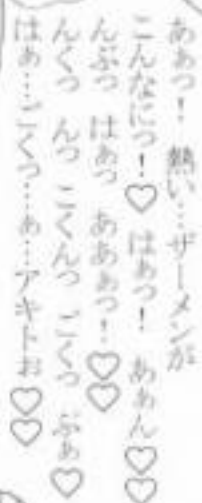 ああっ！　熱い…ザーメンが
こんなにっ！♡　はぁっ！　あぁん♡♡
んぶっ　はぁっ　あああっ！♡♡
んくっ　んっ　こくんっ　ごくっ　ぷぁ♡
はぁ…ごくっ…あ…アキトぉ♡♡